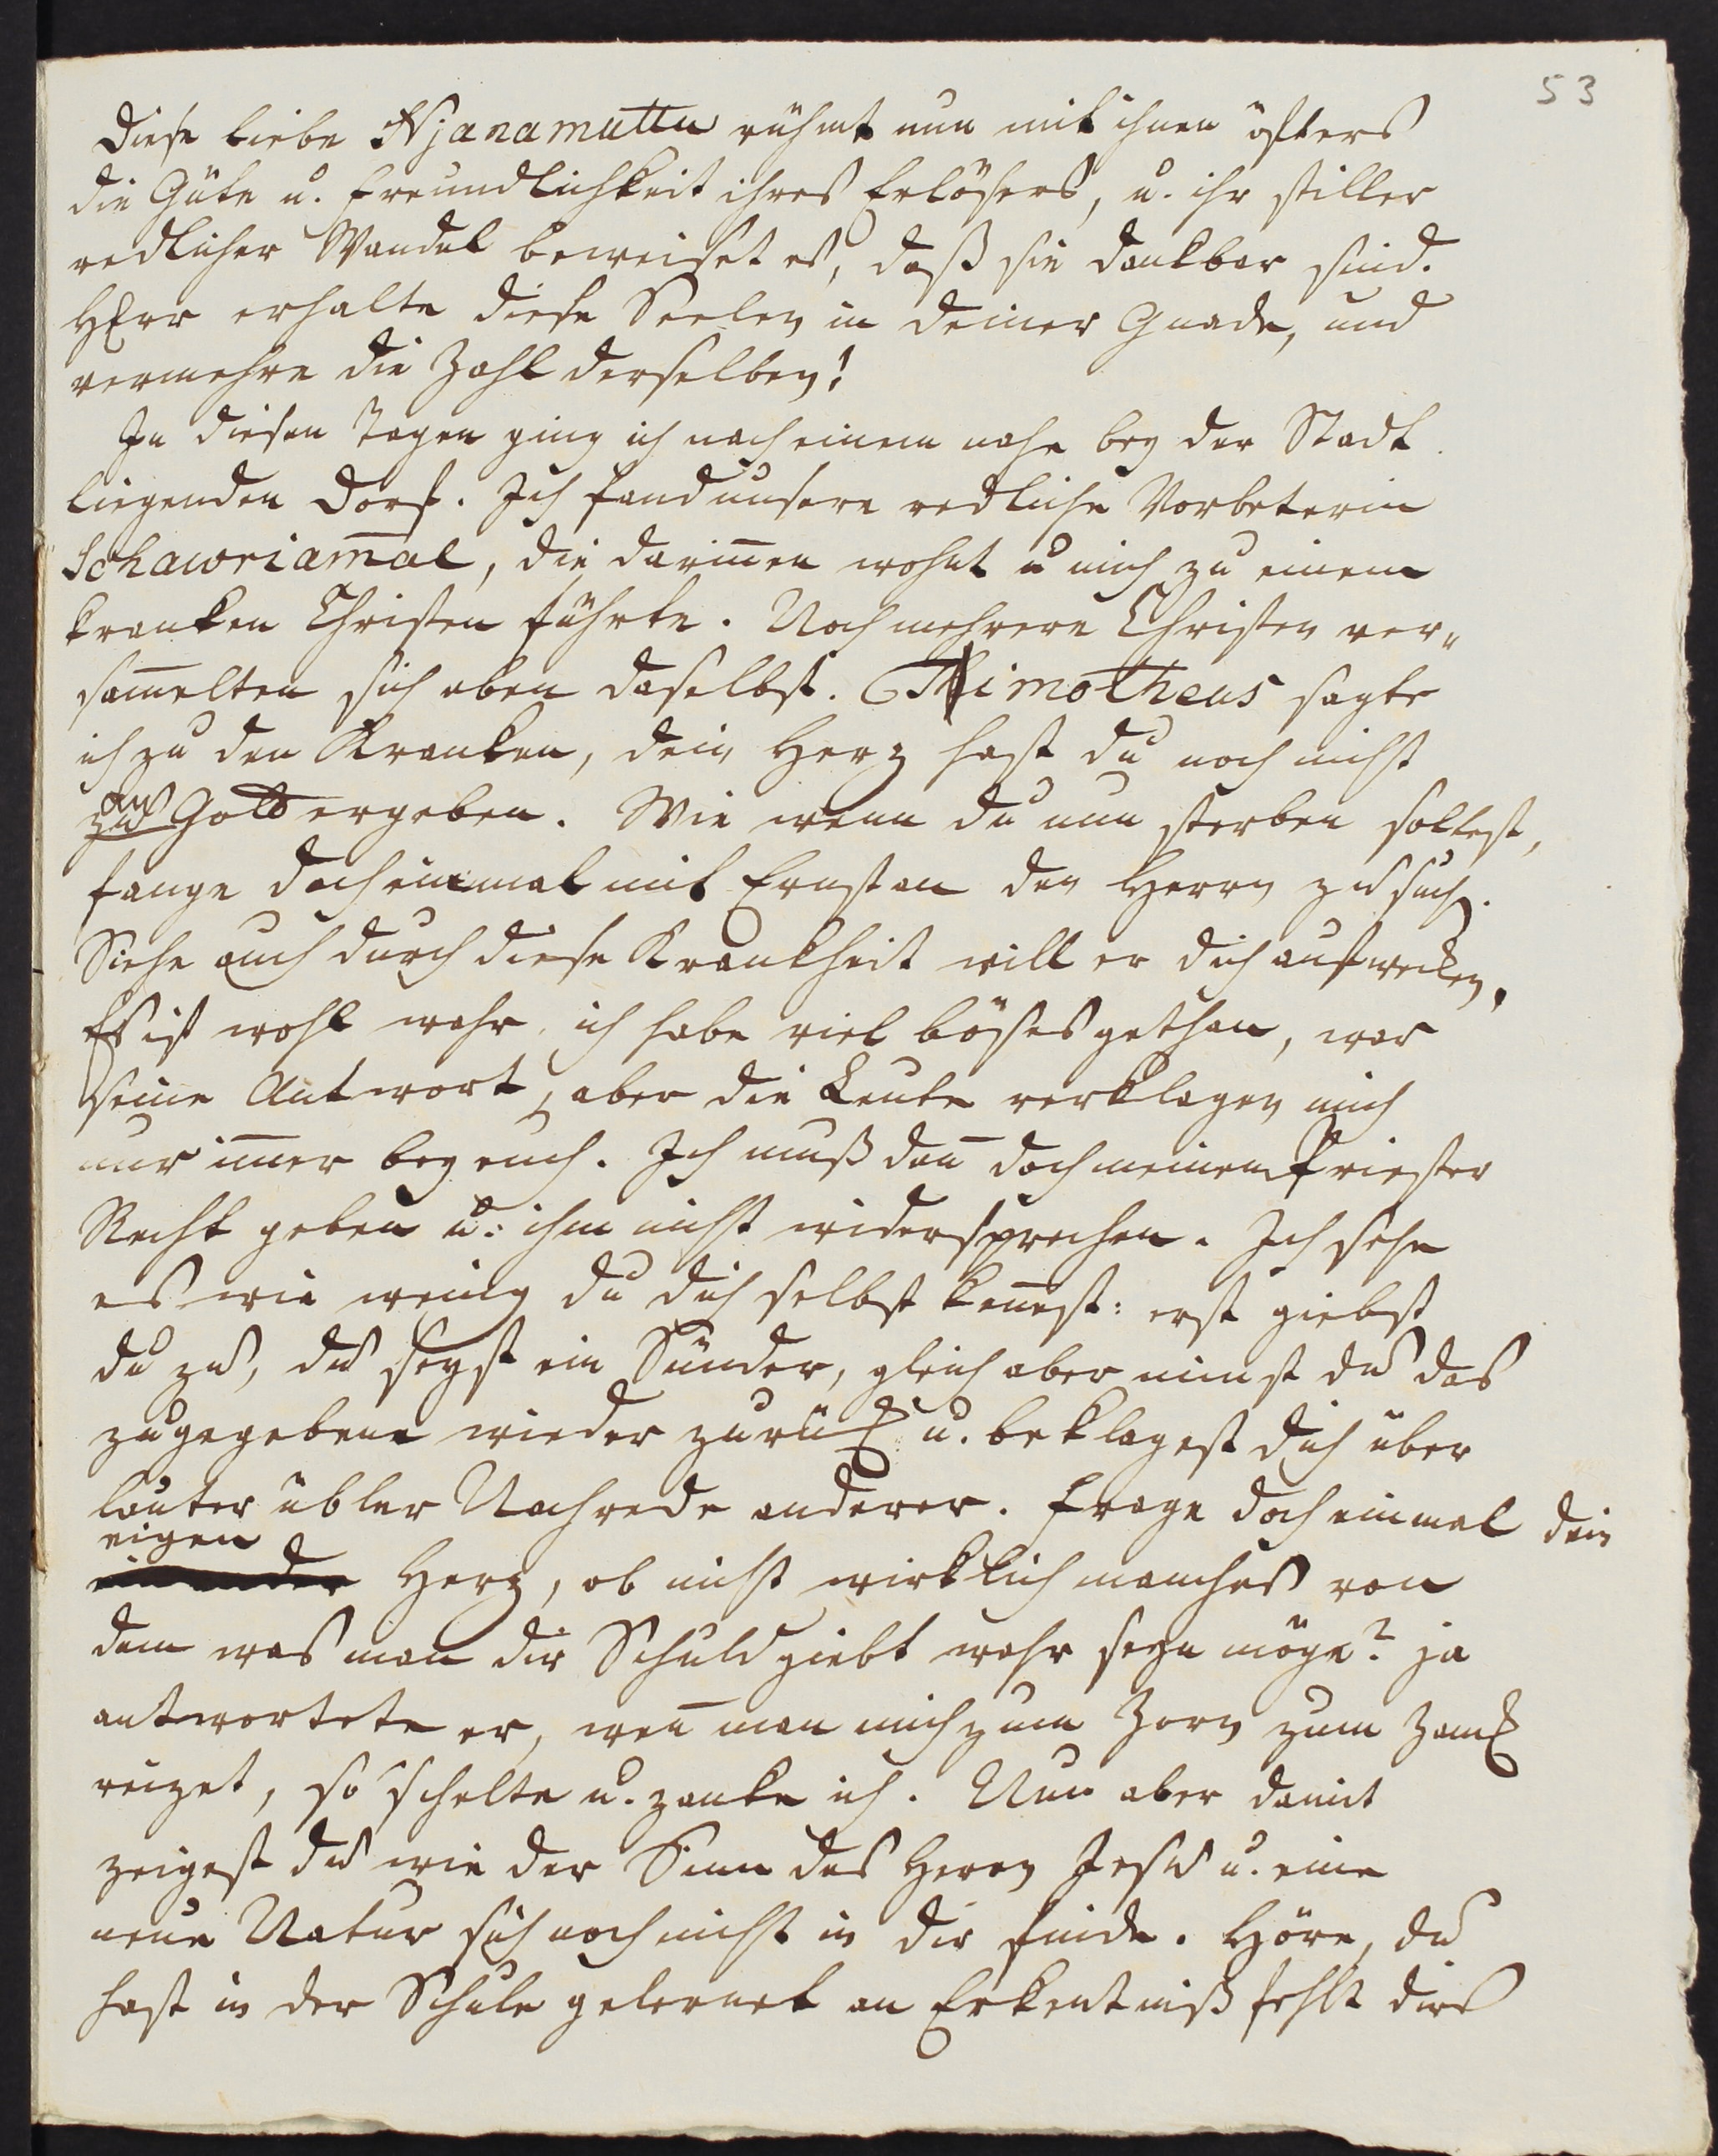 53
Diese liebe Njanamuttu rühmt nun mit ihnen öfters
die Güte u. Freundlichkeit ihres Erlösers, u. ihr stiller
redlicher Wandel beweiset es, daß sie dankbar sind.
HErr erhalte diese Seelen in deiner Gnade, und
vermehre die Zahl derselben!
In diesen Tagen ging ich nach einem nahe bey der Stadt
liegenden Dorf. Ich fand unsere redliche Vorbeterin
Schawriam̅al, die darin̅en wohnt u mich zu einem
kranken Christen führte. Noch mehrere Christen ver„
sam̅elten sich eben daselbst. Thimotheus sagte
ich zu den Kranken, dein Herz hast du noch nicht
zu Gott ergeben. Wie wenn du nun sterben soltest,
fange doch einmal mit Ernst an den Herrn zu such.
Siehe auch durch diese Krankheit will er dich aufwecken.
Es ist wohl wahr, ich habe viel böses gethan, war
seine Antwort, aber die Leute verklagen mich
nur im̅er bey euch. Ich muß dan̅ doch meinem Priester
Recht geben u: ihm nicht widersprechen. Ich sehe
es wie wenig du dich selbst ken̅est: erst giebst
du zu, du seyst ein Sünder, gleich aber nimst du das
zugegebene wieder zurück u. beklagest dich über
lauter übler Nachrede anderer. Frage doch einmal dein
eigen
Herz, ob nicht wirklich manches von
dem was man dir Schuld giebt wahr seyn möge? ja
antwortete er, wen̅ man mich zum Zorn zum Zanck
reizet, so schelte u. zanke ich. Nun aber damit
zeigest du wie der Sinn des Herrn Jesu u. eine
neue Natur sich noch nicht in dir finde. Höre, du
hast in der Schule gelernet an Erkentniß fehlt dirs